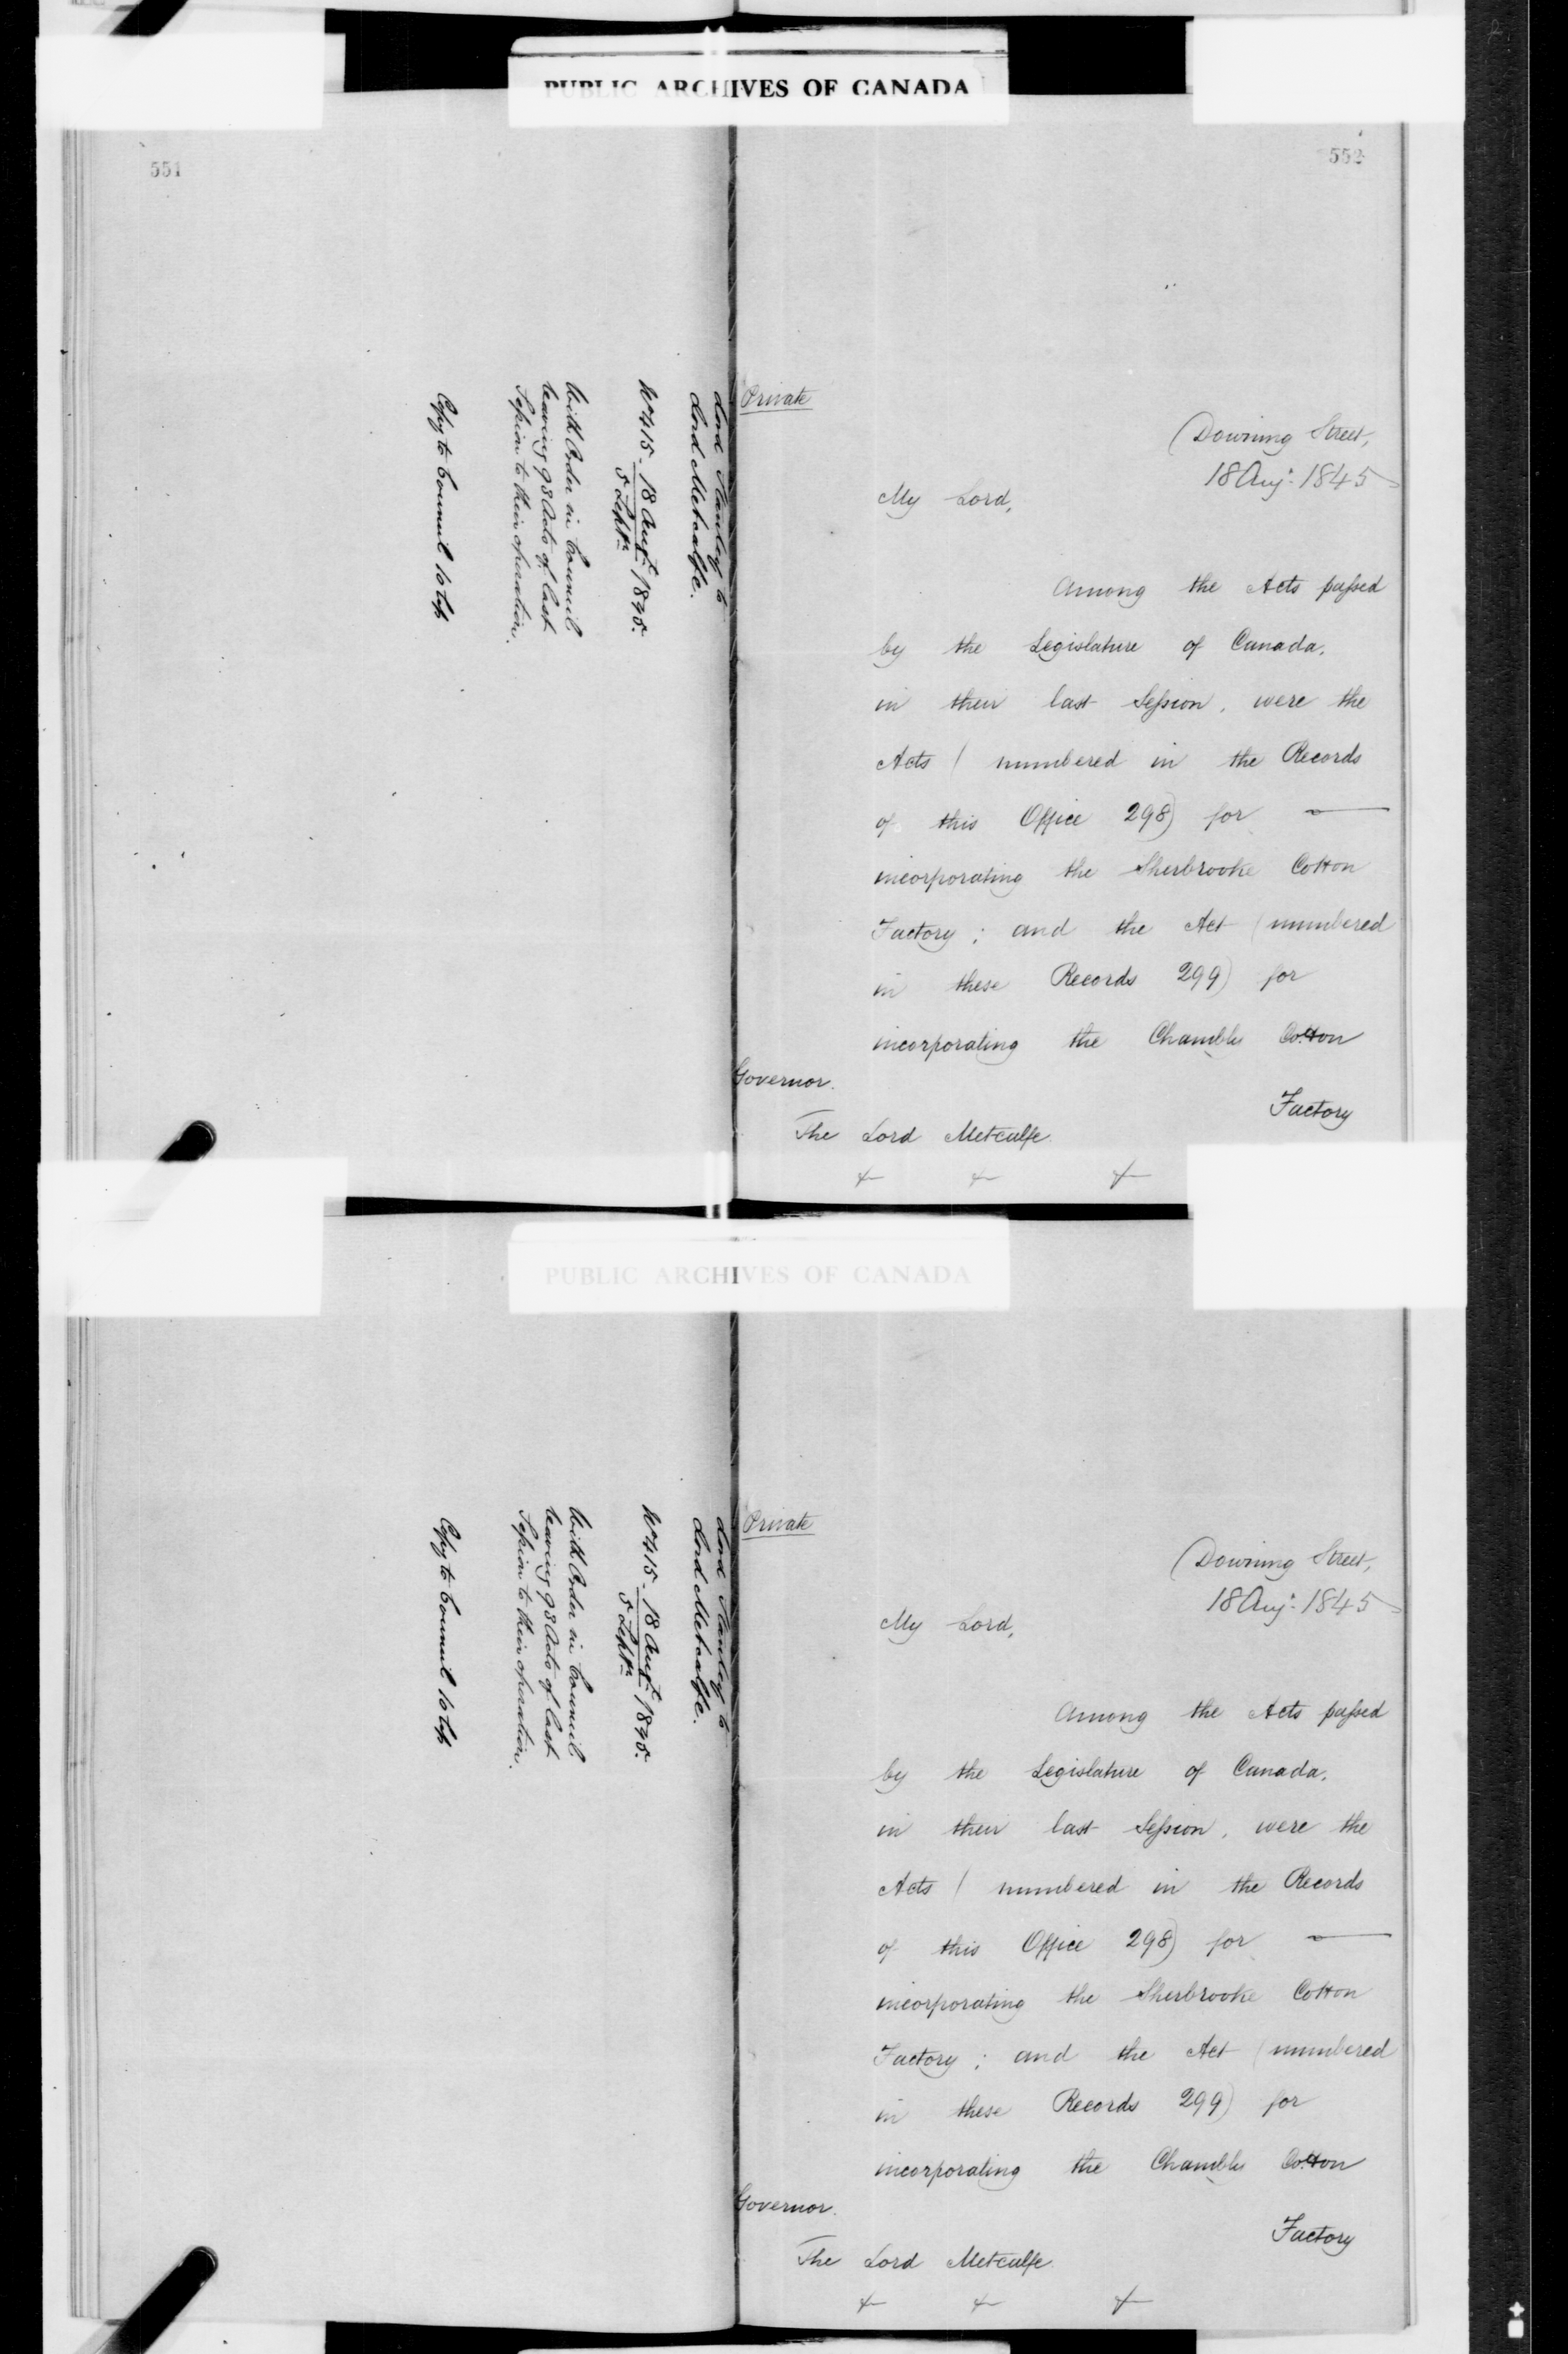 PUBLIC ARCHIVES OF CANADA
551
Lord Stanley to
Lord Metcalfe.
No 415. 18 Augt 1845.
5 Septr
With Order in Council
leaving 98 Acts of last
Session to their operation.
Copy to Council
552
Private
Downing Street,
18 Aug: 1845
My Lord,
Among the Acts passed
by the Legislature of Canada,
in their last Session, were the
Acts (numbered in the Records
of this Office 298) for —
incorporating the Sherbrooke Cotton
Factory; and the Act (numbered
in these Records 299) for
incorporating the Chambly Cotton
Factory
Governor.
The Lord Metcalfe.
PUBLIC ARCHIVES OF CANADA
Lord Stanley to
Lord Metcalfe.
No 415. 18 Augt 1845.
5 Septr
With Order in Council
leaving 98 Acts of last
Session to their operation.
Copy to Council
Private
Downing Street,
18 Aug: 1845
My Lord,
Among the Acts passed
by the Legislature of Canada,
in their last Session, were the
Acts (numbered in the Records
of this Office 298) for —
incorporating the Sherbrooke Cotton
Factory; and the Act (numbered
in these Records 299) for
incorporating the Chambly Cotton
Factory
Governor.
The Lord Metcalfe.